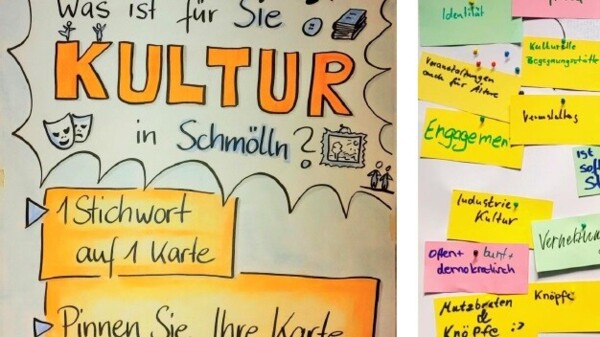 Was ist für Sie
KULTUR
in Schmölln?
1 Stichwort
auf 1 Karte
Pinnen Sie Ihre Karte
Identität
Kulturelle
Begegnungsstätte
Veranstaltungen
auch für Ältere
Veranstaltung
Engagement
ist
Industrie
Kultur
Offen + bunt +
demokratisch
Knöpfe
Mutzbraten
&
Knöpfe :)